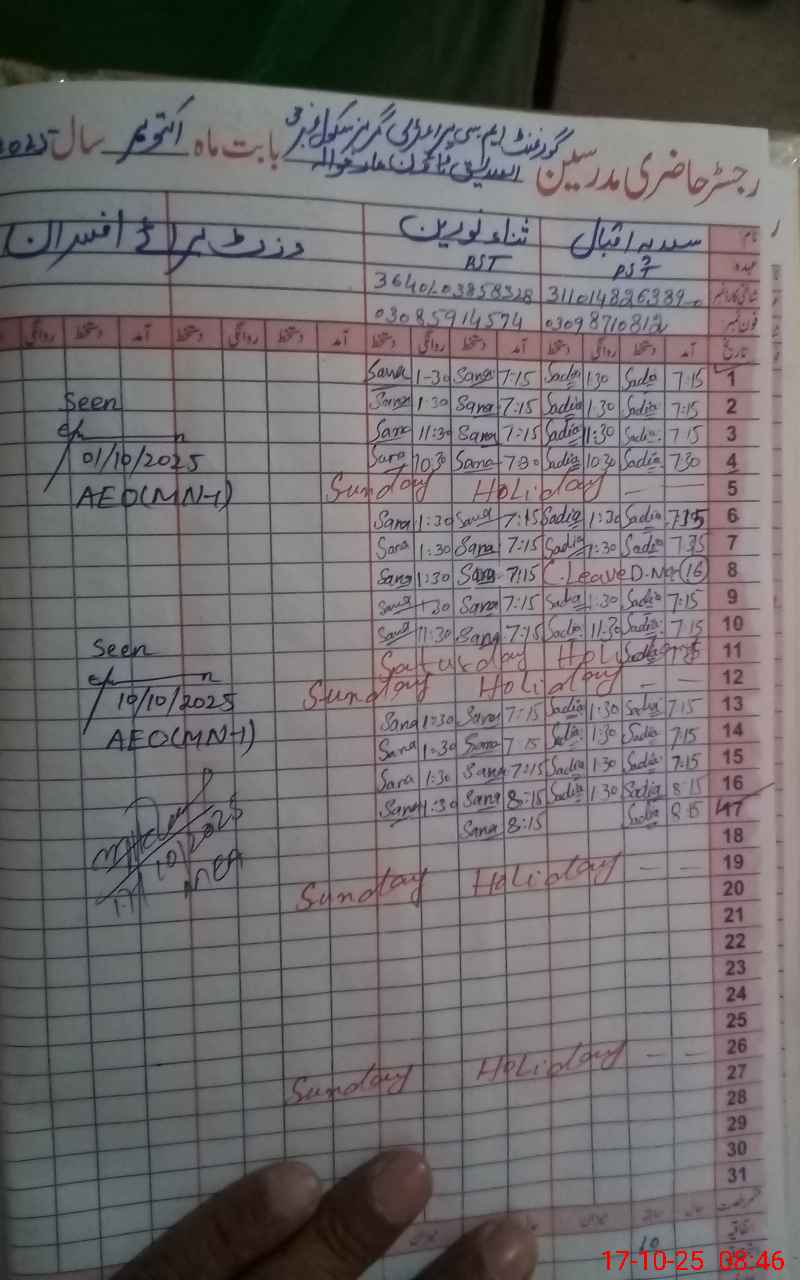 گورنمنٹ ایم سی پرائمری گرلز سکول نمبر 3
رجسٹر حاضری مدرسین بابت ماہ اکتوبر سال 2025
نام سعدیہ اقبال ثناء نورین وزٹ برائے افسران
عہدہ PST PST
فون نمبر 03098710812 03085914574
تاریخ آمد دستخط روانگی دستخط آمد دستخط روانگی دستخط آمد دستخط روانگی دستخط آمد دستخط روانگی
1 7:15 Sadia 1:30 Sadia 7:15 Sana 1-30 Sana
2 7:15 Sadia 1:30 Sadia 7:15 Sana 1:30 Sana
Seen
3 7:15 Sadia 11:30 Sadia 7:15 Sana 11:30 Sana
4 7:30 Sadia 10:30 Sadia 7:30 Sana 10:30 Sana
01/10/2025
5 Sunday Holiday — —
AEO(MN-1)
6 7:15 Sadia 1:30 Sadia 7:15 Sana 1:30 Sana
7 7:15 Sadia 1:30 Sadia 7:15 Sana 1:30 Sana
8 C.Leave D.No(16) 7:15 Sana 1:30 Sana
9 7:15 Sadia 1:30 Sadia 7:15 Sana 1:30 Sana
10 7:15 Sadia 11:30 Sadia 7:15 Sana 11:30 Sana
Seen
11 Saturday Holiday
12 Sunday Holiday — —
10/10/2025
13 7:15 Sadia 1:30 Sadia 7:15 Sana 1:30 Sana
AEO(MN-1)
14 7:15 Sadia 1:30 Sadia 7:15 Sana 1:30 Sana
15 7:15 Sadia 1:30 Sadia 7:15 Sana 1:30 Sana
16 8:15 Sadia 1:30 Sadia 8:15 Sana 1:30 Sana
17 8:15 Sadia 8:15 Sana
17/10/2025
MEA
18
19 Sunday Holiday — —
20
21
22
23
24
25
26 Sunday Holiday — —
27
28
29
30
31
10
17-10-25 08:46